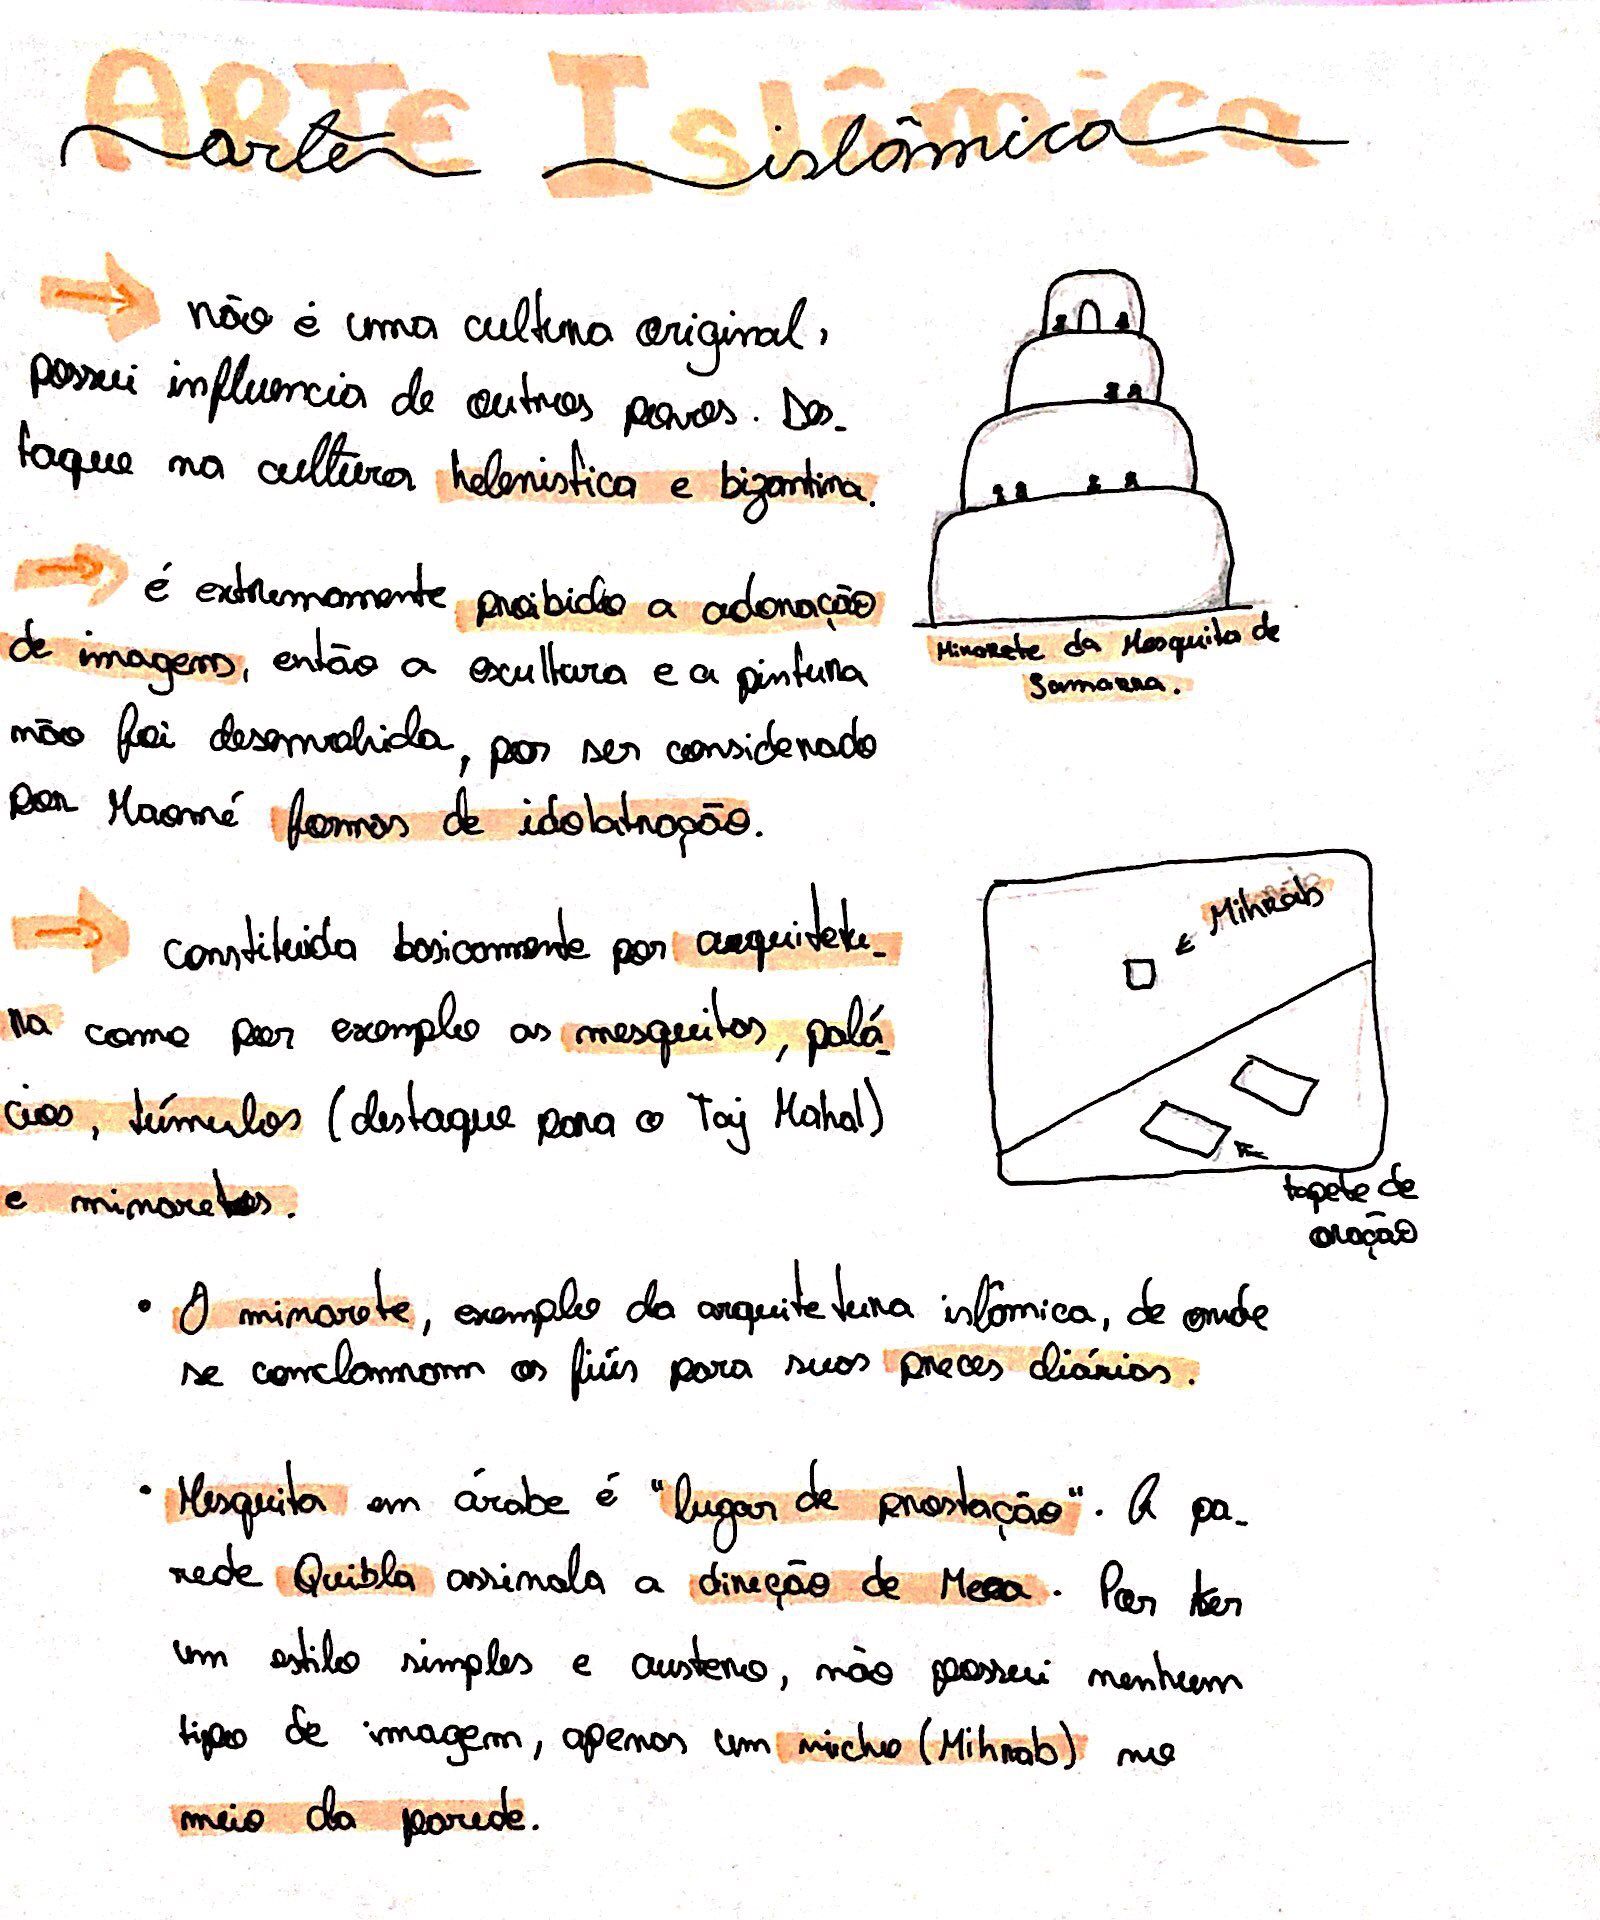 Arte Islâmica
arte islâmica
não é uma cultura original,
possui influencia de outros povos. Des-
taque na cultura helenística e bizantina.
é extremamente proibido a adoração
de imagens, então a escultura e a pintura
não foi desenvolvida, por ser considerado
por Maomé formas de idolatração.
constituida basicamente por arquitetu-
ra como por exemplo as mesquitas, palá-
cios, túmulos (destaque para o Taj Mahal)
e minaretes.
Minarete da Mesquita de
Samarra.
Mihrab
tapete de
oração
• O minarete, exemplo da arquitetura islâmica, de onde
se conclamam os fiéis para suas preces diárias.
• Mesquita em árabe é "lugar de prostação". A pa-
rede Quibla assinala a direção de Meca. Por ter
um estilo simples e austero, não possui nenhum
tipo de imagem, apenas um nicho (Mihrab) no
meio da parede.